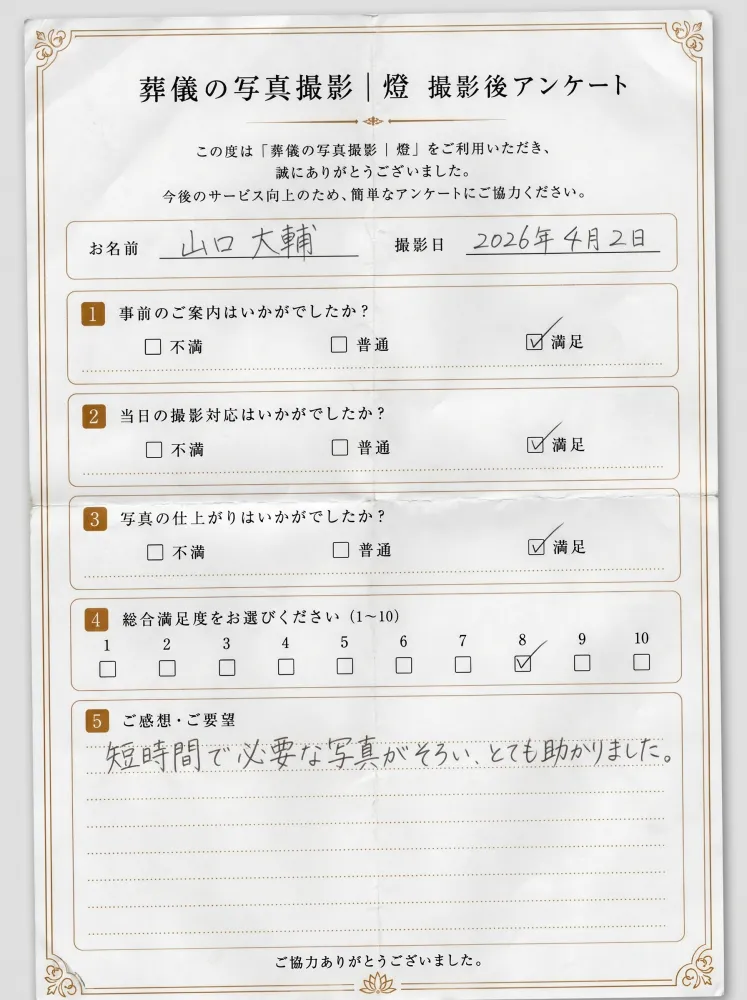 葬儀の写真撮影｜燈 撮影後アンケート
この度は「葬儀の写真撮影｜燈」をご利用いただき、
誠にありがとうございました。
今後のサービス向上のため、簡単なアンケートにご協力ください。
お名前 山口 大輔 撮影日 2026年4月2日
1 事前のご案内はいかがでしたか？
□ 不満 □ 普通 ☑ 満足
2 当日の撮影対応はいかがでしたか？
□ 不満 □ 普通 ☑ 満足
3 写真の仕上がりはいかがでしたか？
□ 不満 □ 普通 ☑ 満足
4 総合満足度をお選びください（1〜10）
1 2 3 4 5 6 7 8 9 10
□ □ □ □ □ □ □ ☑ □ □
5 ご感想・ご要望
短時間で必要な写真がそろい、とても助かりました。
ご協力ありがとうございました。